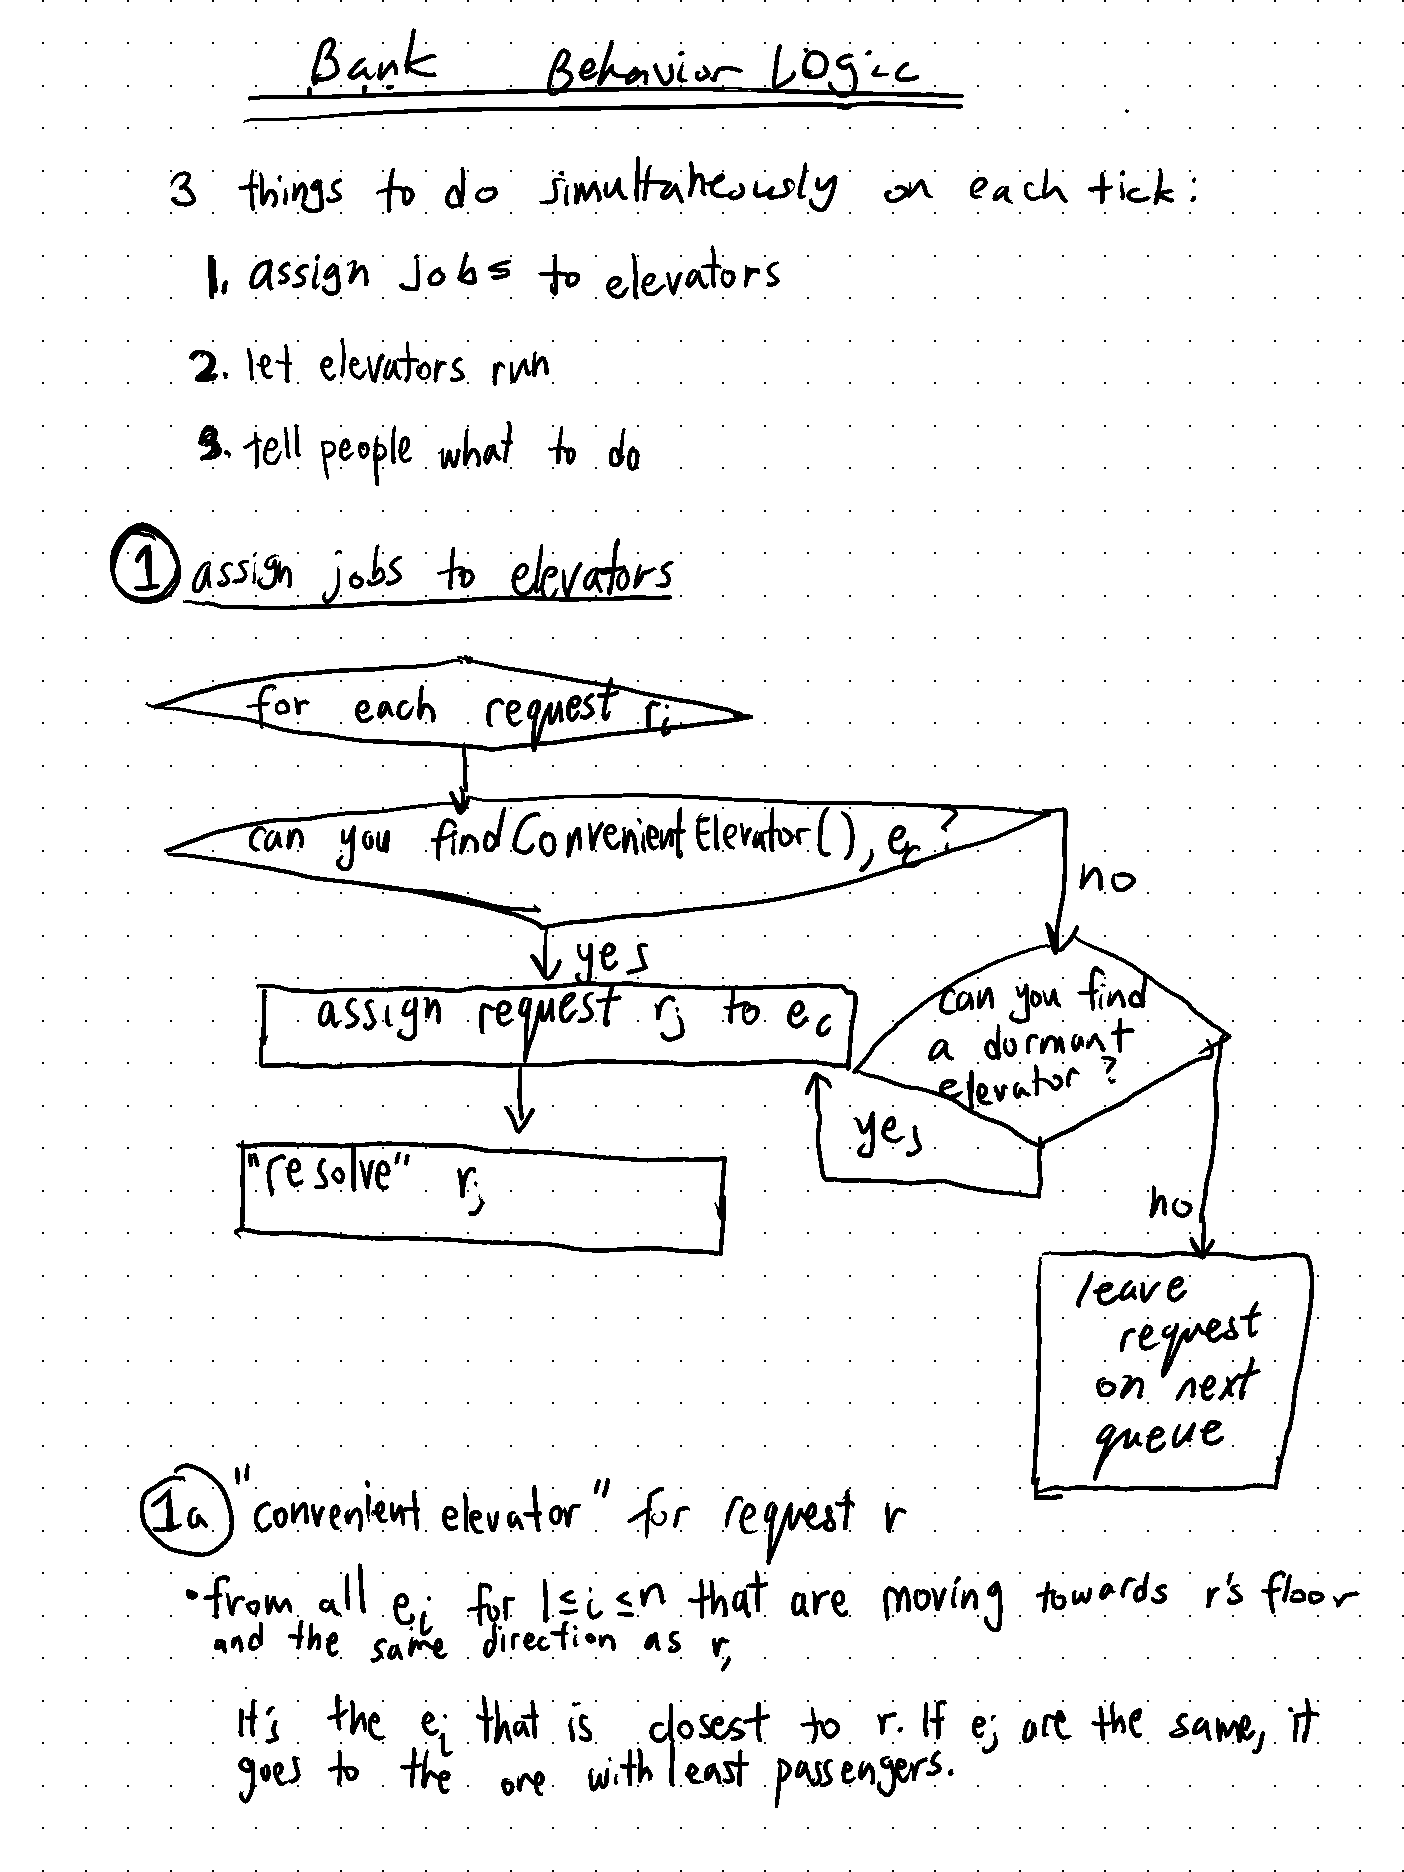 Bank Behavior Logic
3 things to do simultaneously on each tick:
1. assign jobs to elevators
2. let elevators run
3. tell people what to do
1 assign jobs to elevators
for each request ri
can you findConvenientElevator(), ec?
no
yes
assign request rj to ec
can you find
a dormant
elevator?
yes
"resolve" rj
no
leave
request
on next
queue
1a "convenient elevator" for request r
• from all ei for 1≤i≤n that are moving towards r's floor
and the same direction as r,
It's the ei that is closest to r. If ej are the same, it
goes to the one with least passengers.